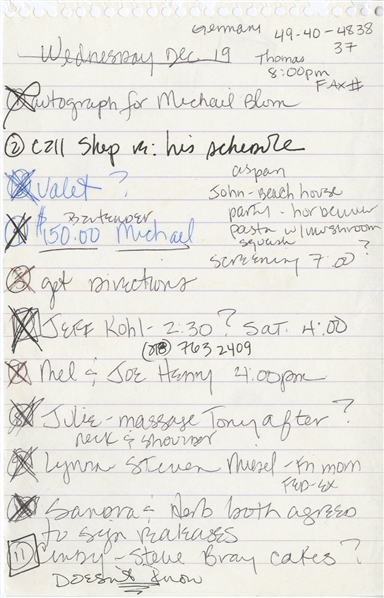 Germany 49-40-4838
37
Wednesday Dec 19
Thomas
8:00pm
FAX#
autograph for Michael Blum
② call Shep re: his schedule
Valet ?
aspan
John - Beach house
party - hor
pasta w/mushroom
squash ?
screening 7:00
Bartender
$150.00 Michael
get directions
JEFF Kohl - 2:30? SAT. 4:00
(818) 763 2409
Mel & JOE Henry 4:00pm
Julie - massage Tony after?
neck & shoulder
Lynn Steven - fn mom
FED-EX
Sandra & Herb both agreed
to sign releases
11 Cindy - Steve Bray cakes?
Doesn't know